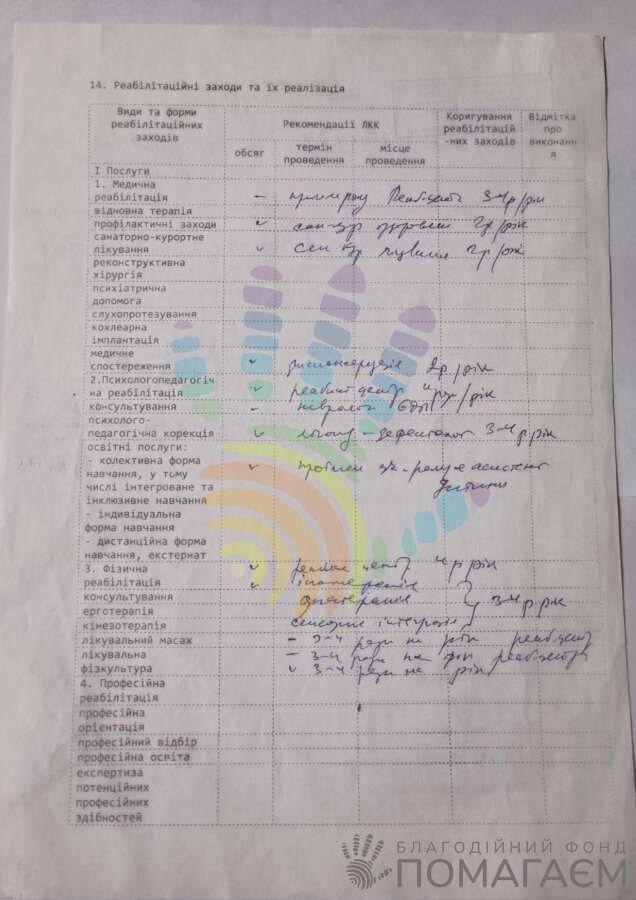 14. Реабілітаційні заходи та їх реалізація
Види та форми реабілітаційних заходів
Рекомендації ЛКК
Коригування реабілітацій-них заходів
Відмітка про виконання
обсяг
термін проведення
місце проведення
I Послуги
1. Медична
реабілітація – Реаб.центр 3-4 р/рік
відновна терапія
профілактичні заходи v 2р/рік
санаторно-курортне
лікування v сан кур лікування 2р/рік
реконструктивна
хірургія
психіатрична
допомога
слухопротезування
кохлеарна
імплантація
медичне
спостереження v 2р/рік
2.Психологопедагогіч
на реабілітація v реабіл центр 4 /рік
консультування –
психолого-
педагогічна корекція v логопед – дефектолог 3-4 р рік
освітні послуги:
- колективна форма v
навчання, у тому
числі інтегроване та
інклюзивне навчання
- індивідуальна
форма навчання
- дистанційна форма
навчання, екстернат
3. Фізична v центр 4 р рік
реабілітація v
консультування 3-4 р рік
ерготерапія
кінезотерапія сенсорна інтеграція
лікувальний масаж – 3-4 рази на рік реаб.центр
лікувальна – 3-4 рази на рік реаб.центр
фізкультура v 3-4 рази на рік
4. Професійна
реабілітація
професійна
орієнтація
професійний відбір
професійна освіта
експертиза
потенційних
професійних
здібностей
БЛАГОДІЙНИЙ ФОНД
ПОМАГАЄМ